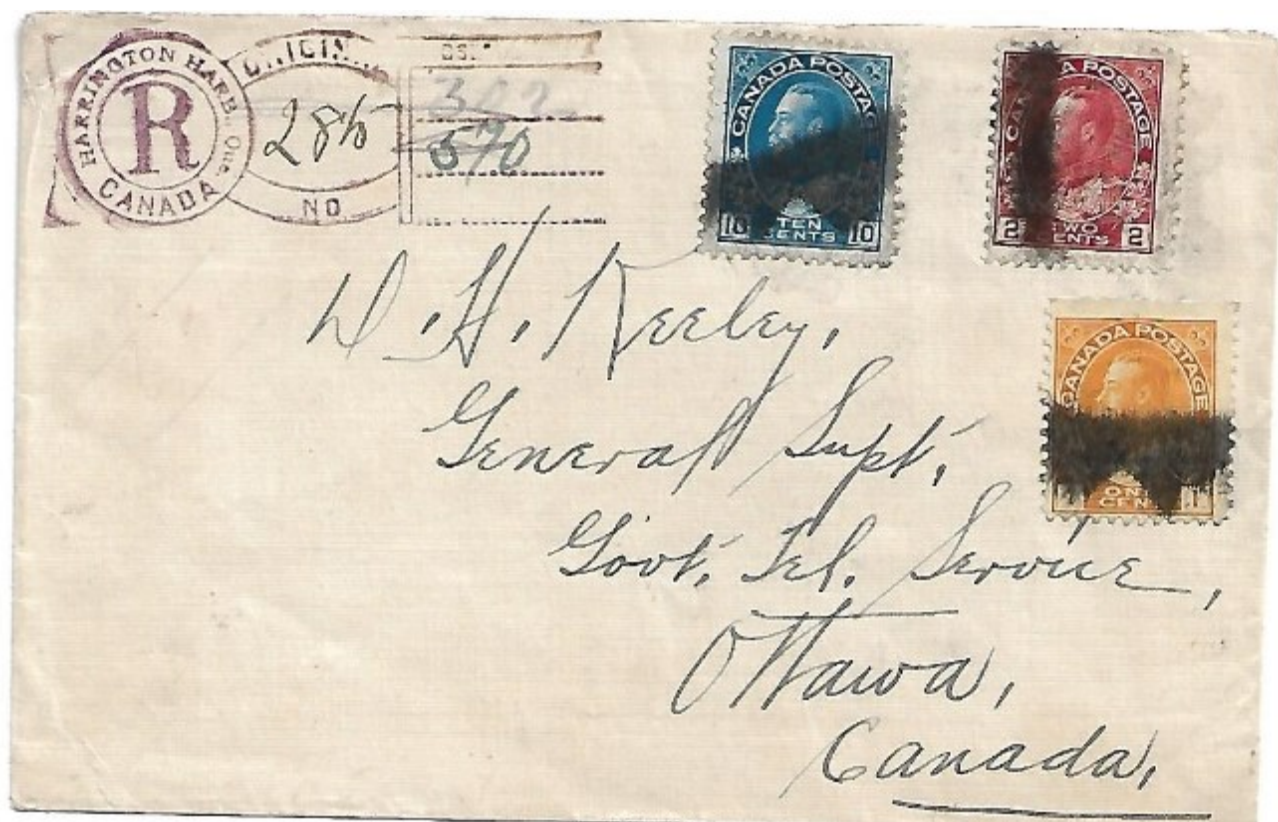 HARRINGTON HARB. Que.
R
CANADA
285
NO
302
570
CANADA POSTAGE
10 TEN CENTS 10
CANADA POSTAGE
2 TWO CENTS 2
CANADA POSTAGE
ONE CENT
D. H. Keeley,
General Supt,
Govt. Tel. Service,
Ottawa,
Canada,